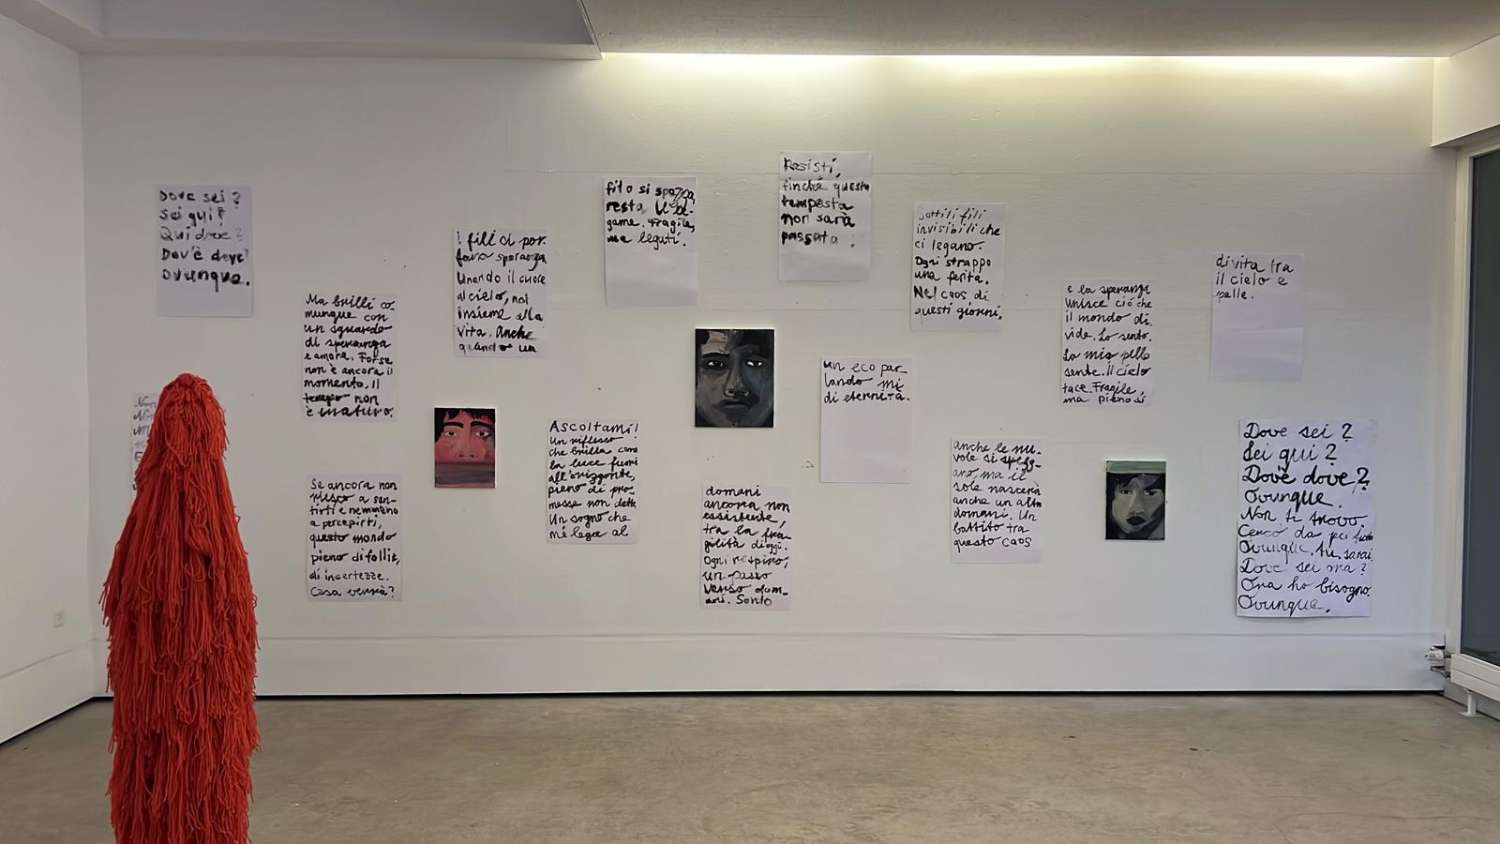 Dove sei?
Sei qui?
Qui dove?
Dov'è dove?
Ovunque.
Ma brilli co-
munque con
un sguardo
di speranza
e amore. Forse
non è ancora il
momento. Il
tempo non
è maturo.
Se ancora non
riesco a sen-
tirti e nemmeno
a percepirti,
questo mondo
pieno di follie,
di incertezze.
Cosa verrà?
I fili ci por-
tano speranza
Unendo il cuore
al cielo, noi
insieme alla
vita. Anche
quando un
Ascoltami!
Un riflesso
che brilla come
la luce fuori
all'orizzonte,
pieno di pro-
messe non dette
Un sogno che
mi lega al
filo si spezza,
resta il le-
game. Fragile,
ma legati.
domani
ancora non
esistente,
tra la fra-
gilità di oggi.
Ogni respiro,
un passo
verso dom-
ani. Sento
Resisti,
finché questa
tempesta
non sarà
passata.
un eco par-
lando mi
di eternità.
Sottili fili
invisibili che
ci legano.
Ogni strappo
una ferita.
Nel caos di
questi giorni,
anche le nu-
vole si spezz-
ano, ma il
sole nascerà
anche un altro
domani. Un
battito tra
questo caos
e la speranza
unisce ciò che
il mondo di-
vide. Lo sento.
La mia pelle
sente. Il cielo
tace. Fragile,
ma pieno di
di vita tra
il cielo e
pelle.
Dove sei?
Sei qui?
Dov'è dove?
Ovunque.
Non ti trovo.
Cerco da per
Ovunque, tu, sarai.
Dove sei ma?
Ora ho bisogno.
Ovunque.